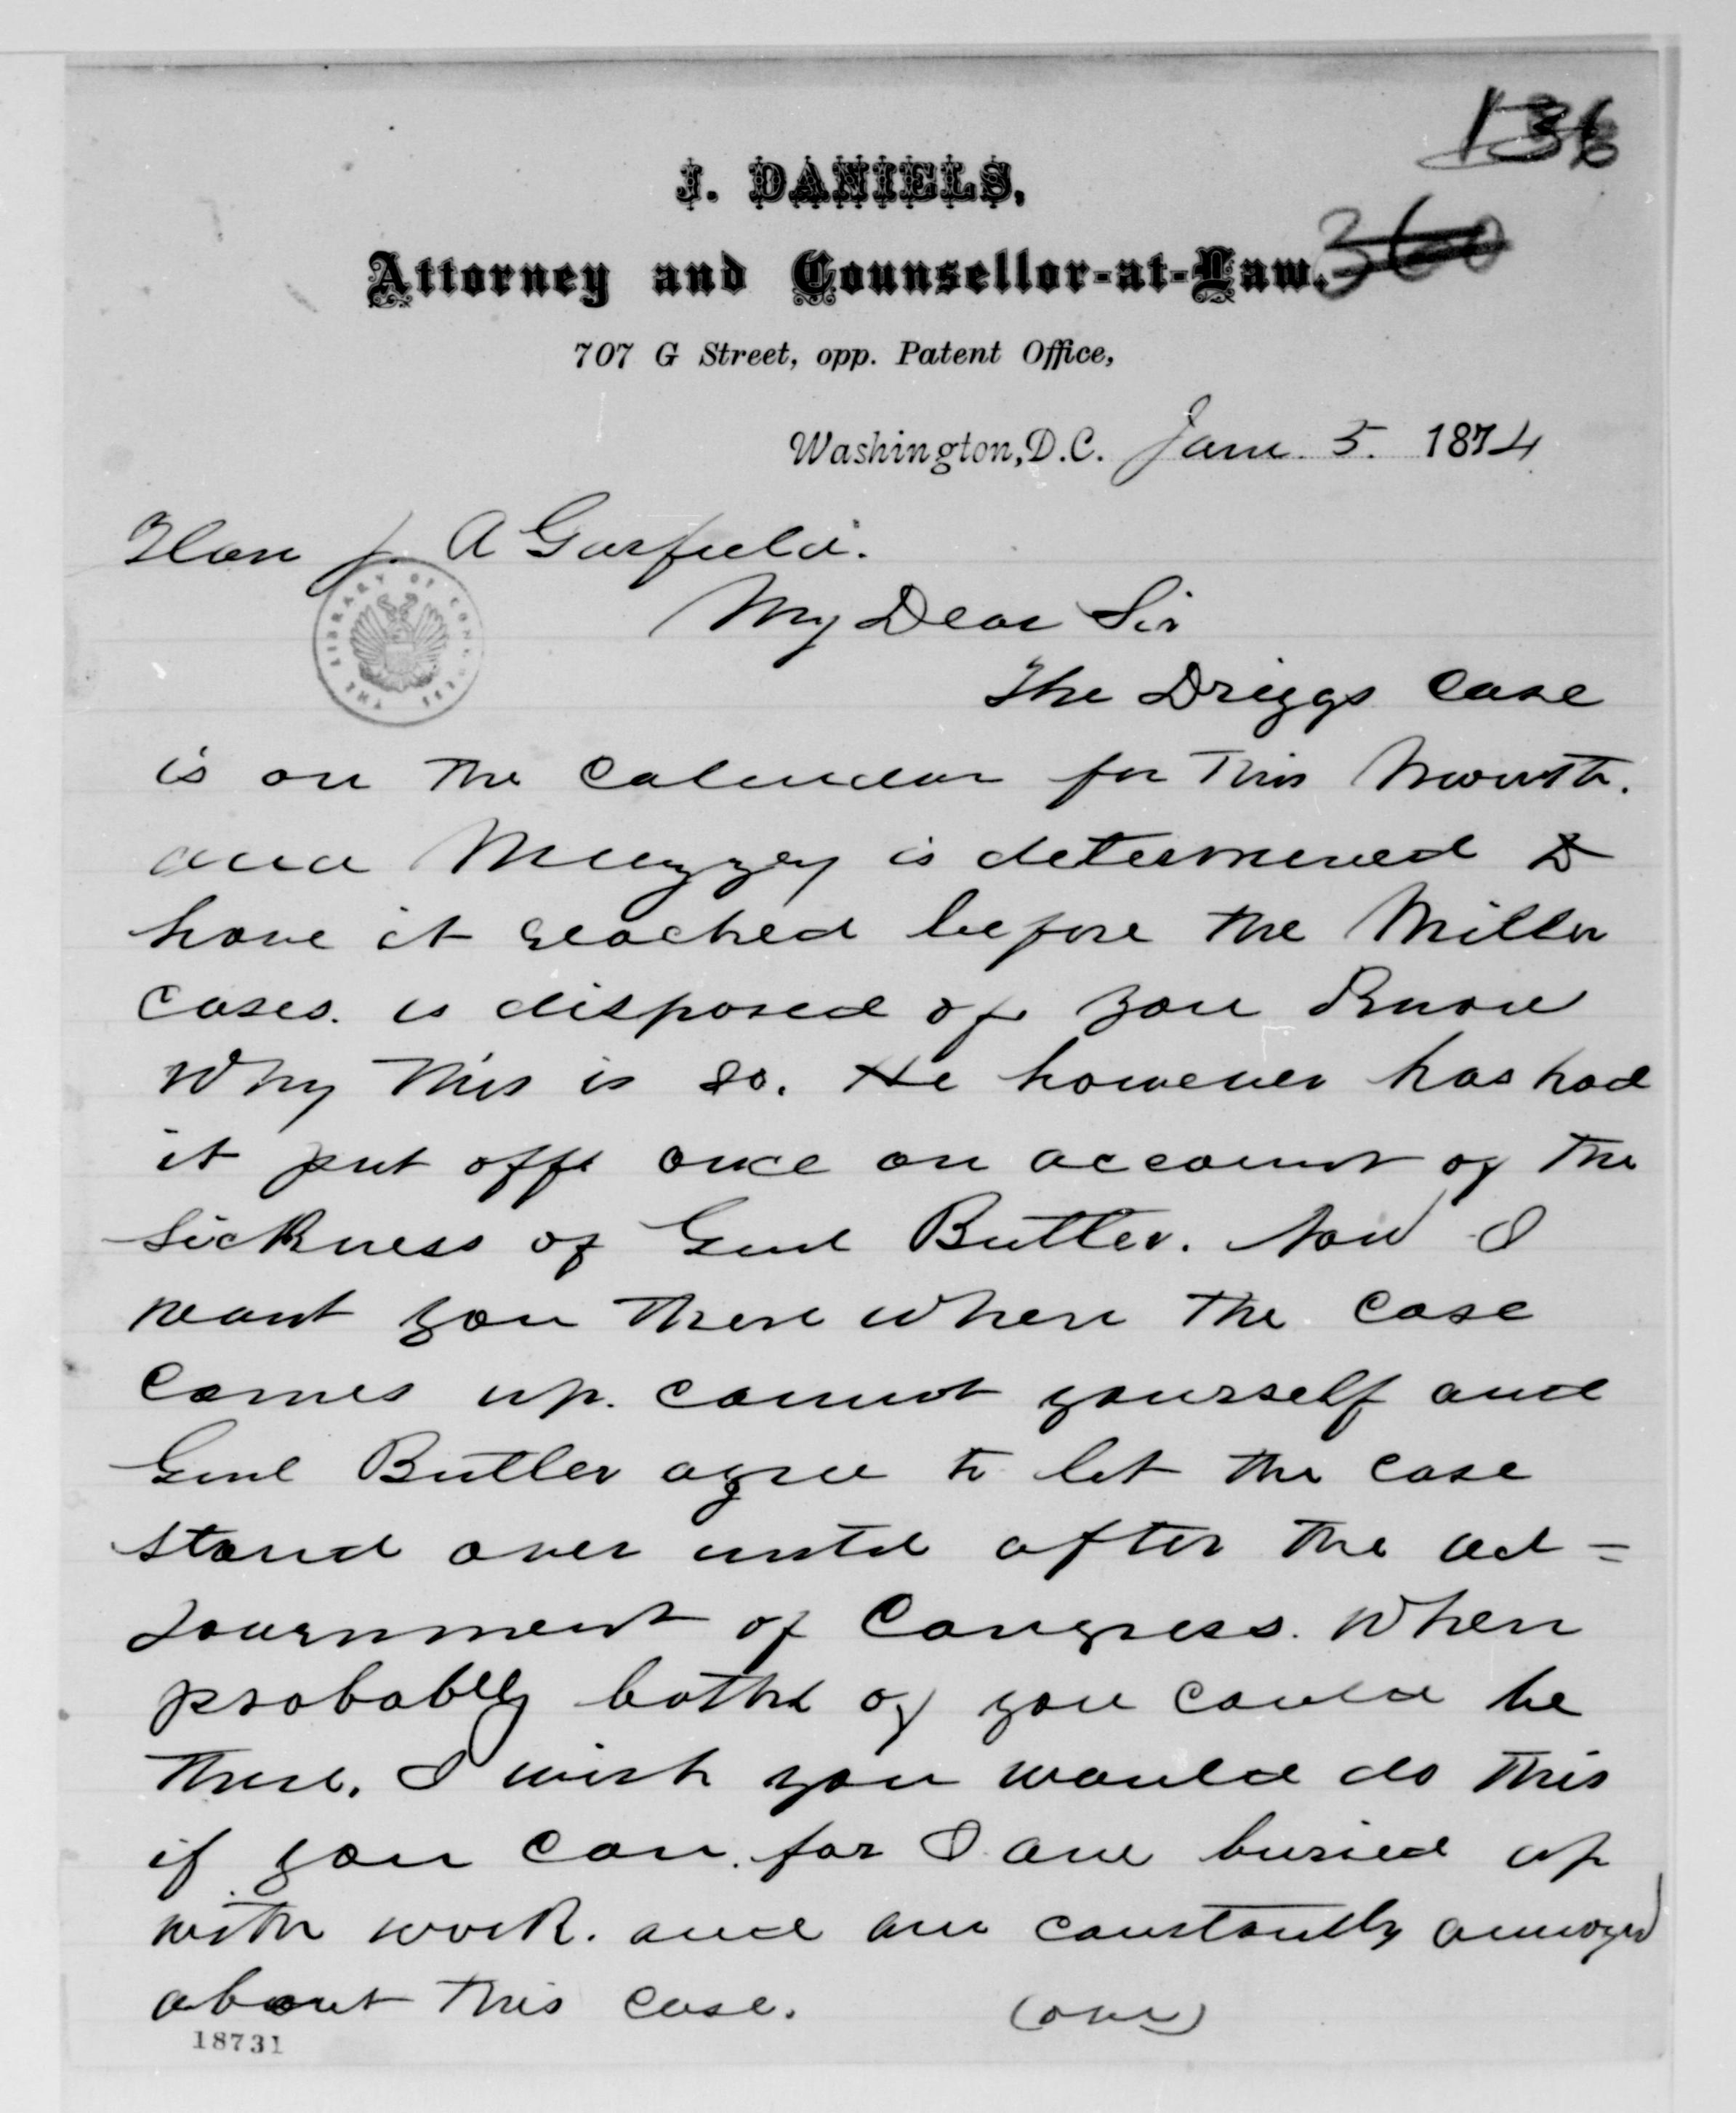 136
360
J. DANIELS,
Attorney and Counsellor-at-Law.
707 G Street, opp. Patent Office,
Washington, D.C. Jan. 5. 1874
Hon J. A Garfield.
THE LIBRARY OF CONGRESS
My Dear Sir
The Driggs case
is on the Calendar for this month.
and Muzzey is determined to
have it reached before the Miller
cases. is disposed of. you know
why this is so. He however has had
it put off once on account of the
sickness of Genl Butler. Now I
want you there when the case
comes up. cannot yourself and
Genl Butler agree to let the case
stand over until after the ad=
journment of Congress. When
probably both of you could be
there. I wish you would do this
if you can. for I am buried up
with work. and am constantly annoyed
about this case. (over)
18731